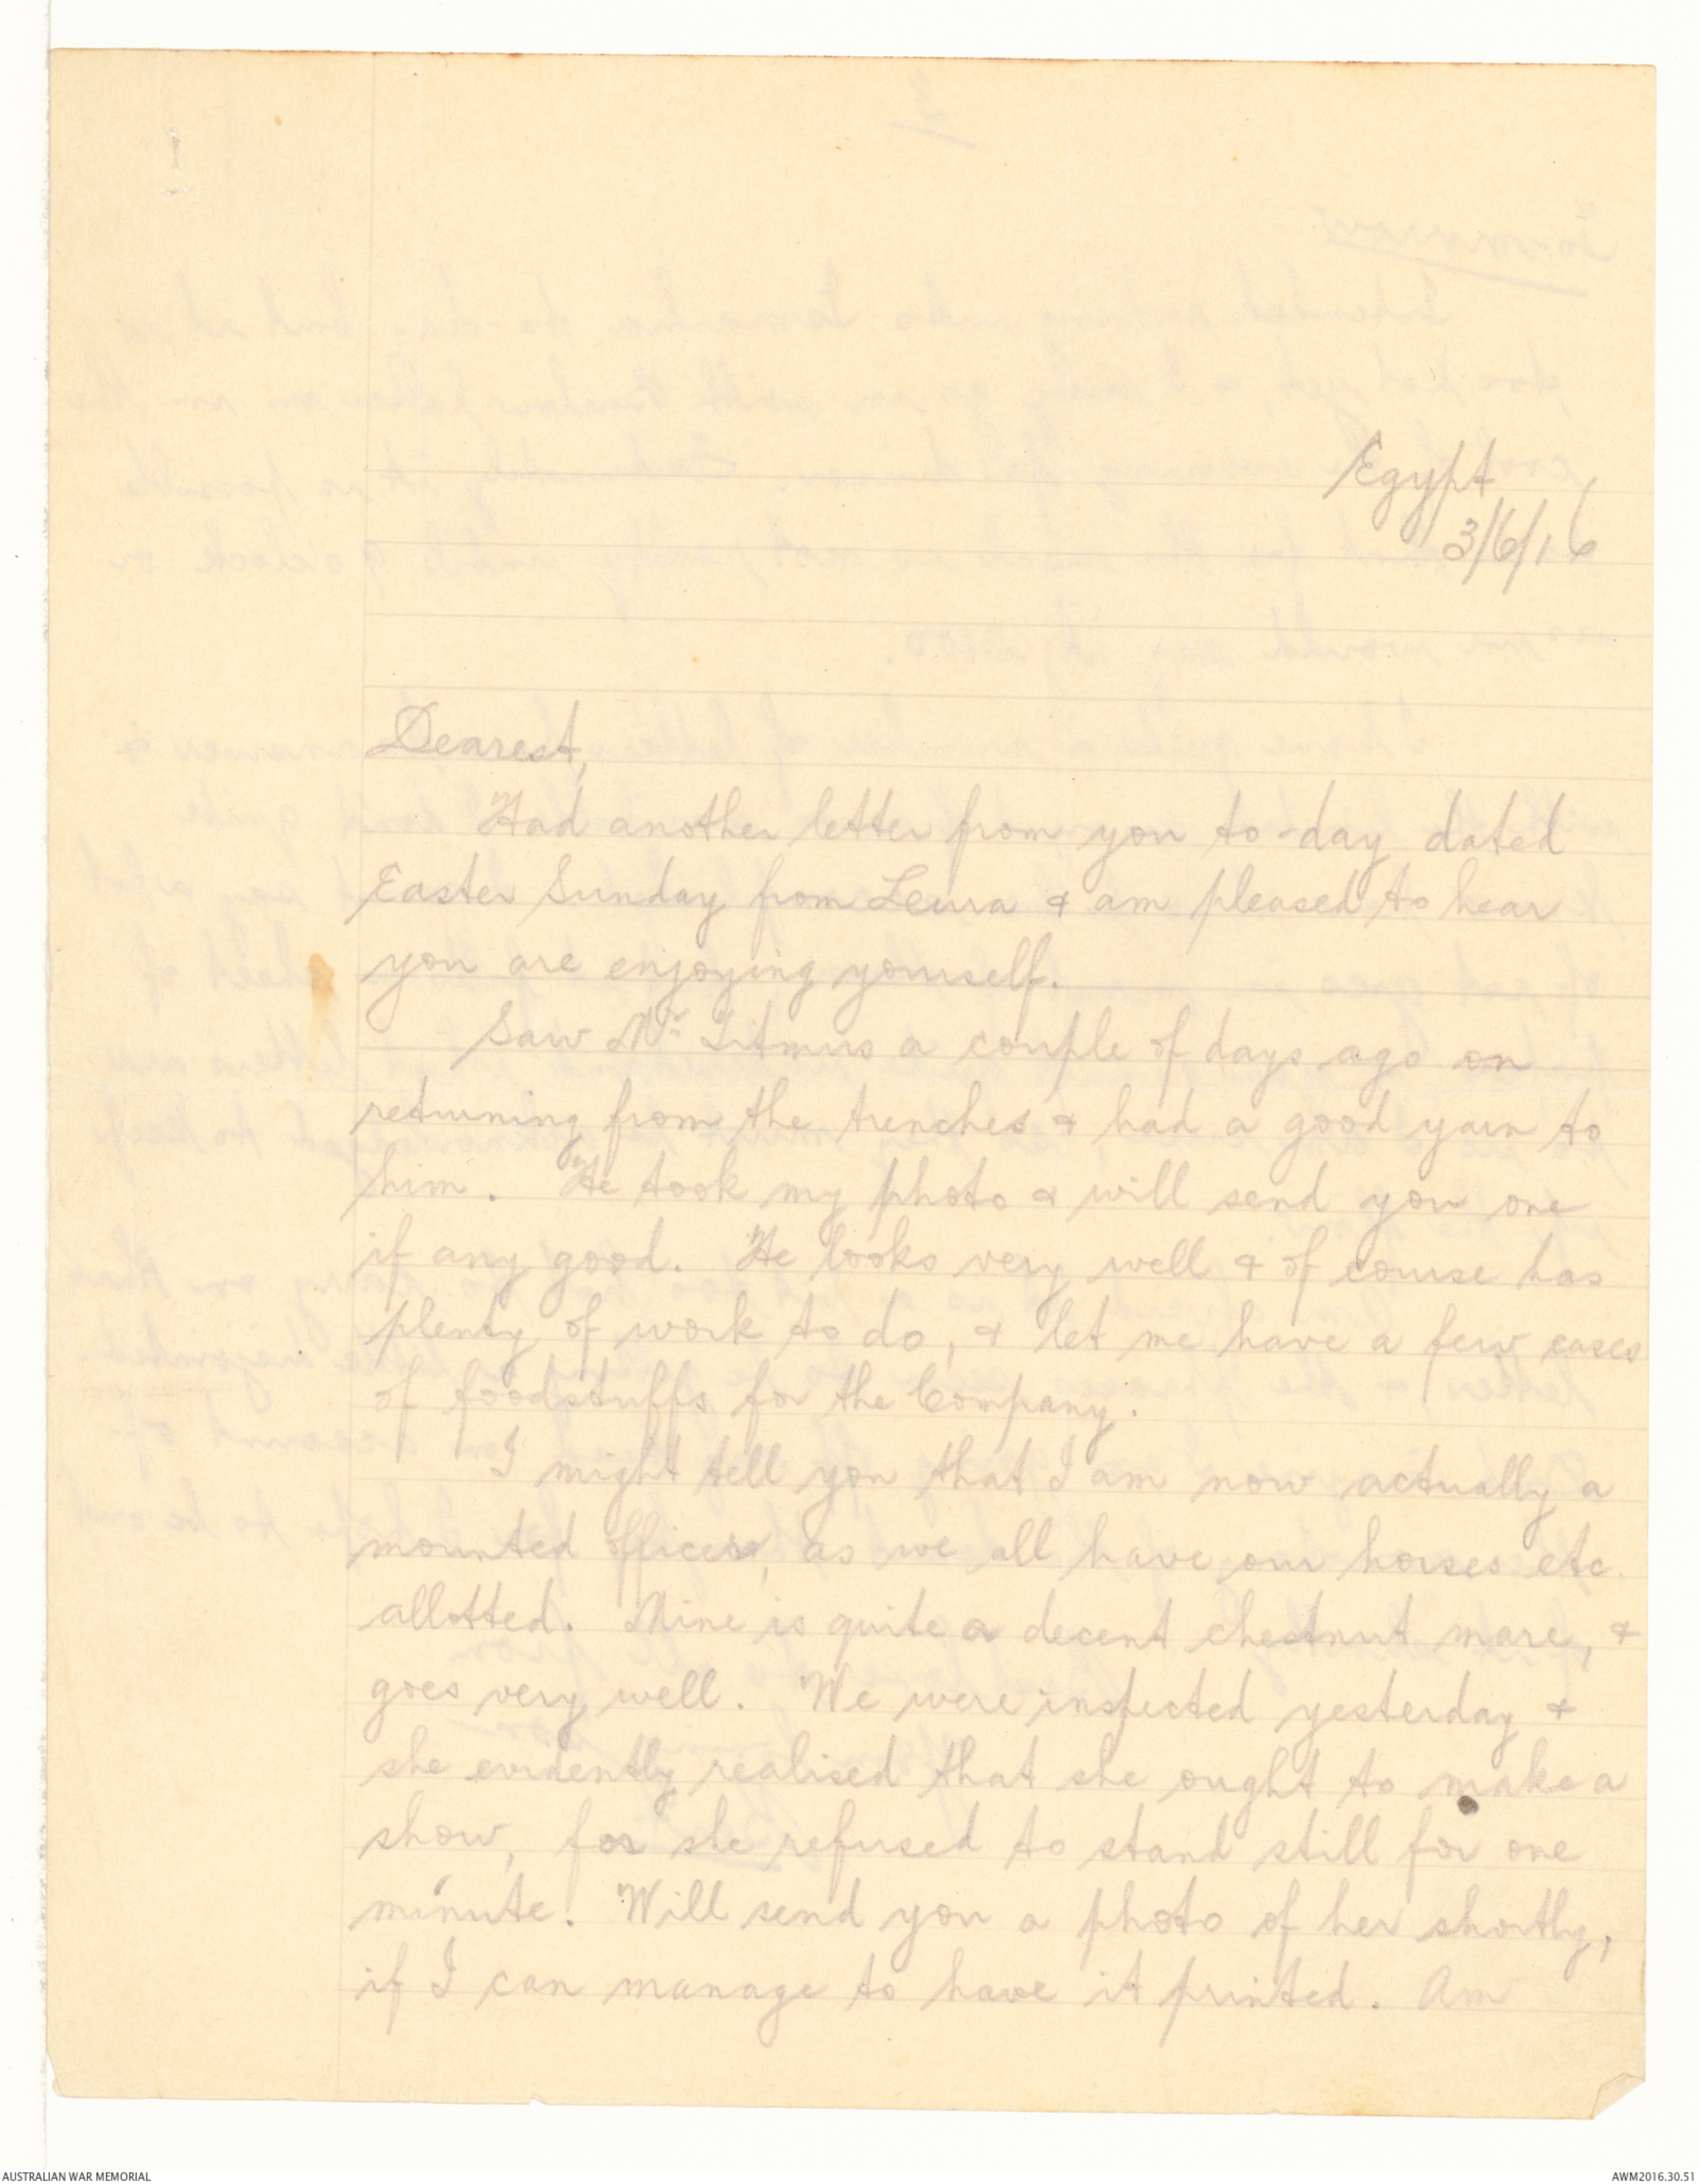 Egypt
3/6/16
Dearest,
Had another letter from you to-day dated
Easter Sunday from Leura & am pleased to hear
you are enjoying yourself.
Saw Mr Litmus a couple of days ago on
returning from the trenches & had a good yarn to
him. He took my photo & will send you one
if any good. He looks very well & of course has
plenty of work to do, & let me have a few cases
of foodstuffs for the Company.
I might tell you that I am now actually a
mounted officer, as we all have our horses etc.
allotted. Mine is quite a decent chestnut mare, &
goes very well. We were inspected yesterday &
she evidently realised that she ought to make a
show, for she refused to stand still for one
minute! Will send you a photo of her shortly,
if I can manage to have it printed. Am
AUSTRALIAN WAR MEMORIAL
AWM2016.30.51